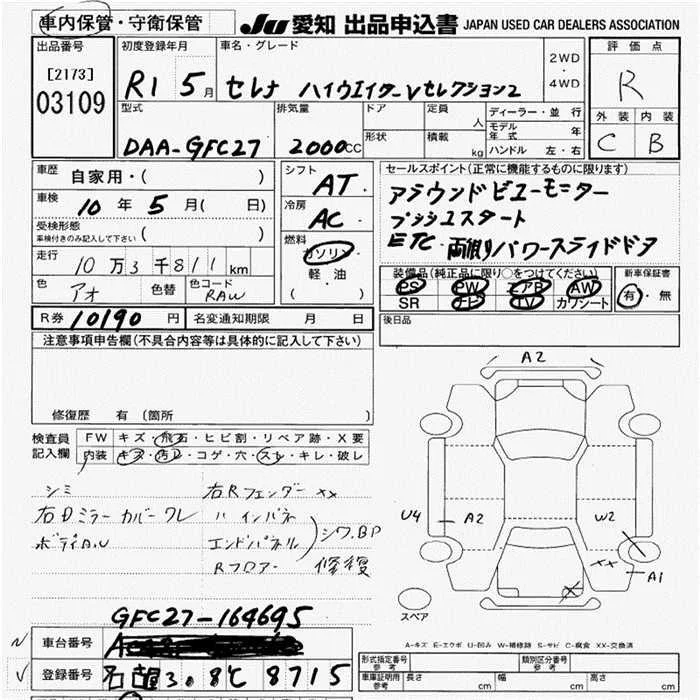 車内保管・守衛保管 JU 愛知 出品申込書 JAPAN USED CAR DEALERS ASSOCIATION
出品番号 初度登録年月 車名・グレード 2WD・4WD 評価点
[2173] 03109
R1 5月 セレナ ハイウエイスターVセレクション2
R
型式 排気量 ドア 定員 人 ディーラー・並行 外装 内装
形状 積載 kg モデル年式 年
DAA-GFC27 2000CC ハンドル 左・右 C B
車歴 自家用・( )
シフト AT
セールスポイント(正常に機能するものに限ります)
アラウンドビューモニター
プッシュスタート
ETC・両側パワースライドドア
車検 10年5月( 日)
冷房 AC
受検形態 ( )
車検付きのみ記入して下さい
燃料 ガソリン・軽油 ( )
走行 10万3千811km
色 アオ 色替 色コード RAW
装備品(純正品に限り○をつけてください) 新車保証書
PS PW エアB AW 有・無
SR ナビ TV カワシート
R券 10190円 名変通知期限 月 日
後日品
注意事項申告欄(不具合内容等は具体的に記入して下さい)
修復歴 有 (箇所
検査員記入欄 FW キズ・飛石・ヒビ割・リペア跡・X要
内装 キズ・汚レ・コゲ・穴・スレ・キレ・破レ
シミ 右Rフェンダー xx
右Dミラーカバーワレ バックパネル
ボディA.U エンドパネル シワ.BP
Rフロアー 修復
A2
U4 A2 W2
xx A1
X
スペア
A-キズ E-エクボ U-凹み W-補修跡 S-サビ C-腐食 XX-交換済
GFC27-164695
車台番号
登録番号 名古屋 3.8℃ 8715
形式指定番号 参考 類別区分番号 参考
車庫証明用 参考 長さ cm 幅 cm 高さ cm